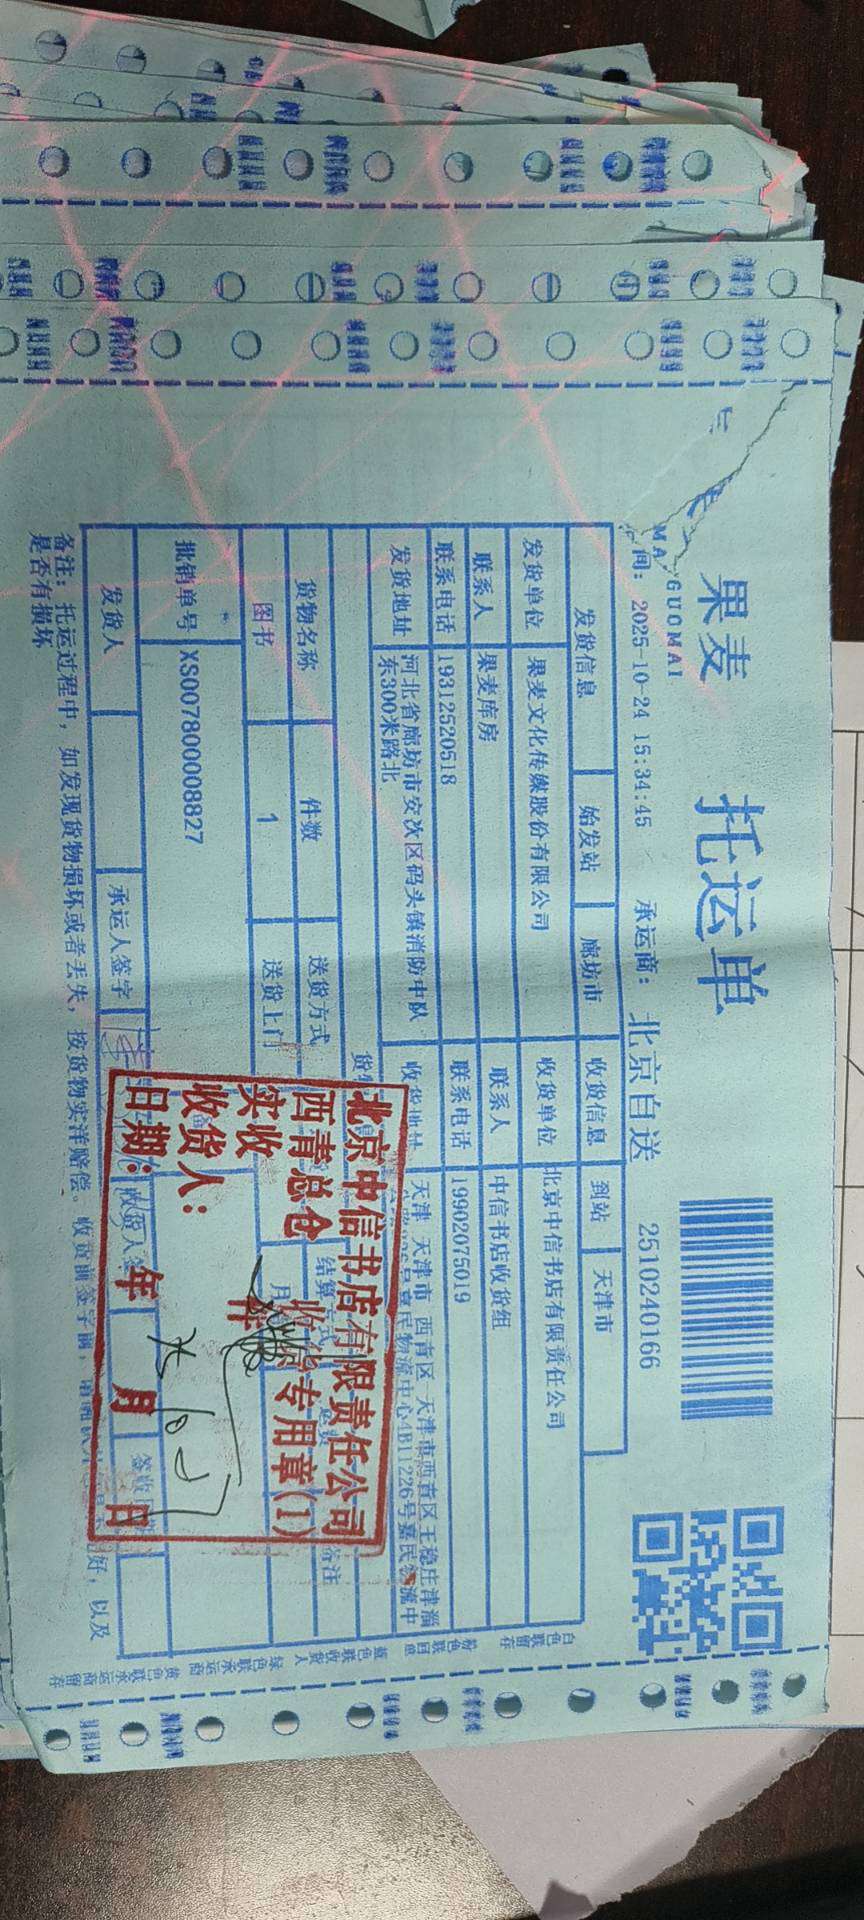 果麦 托运单
GUOMAI
2025-10-24 15:34:45 承运商: 北京自送 2510240166
发货信息 始发站 廊坊市 收货信息 到站 天津市
发货单位 果麦文化传媒股份有限公司 收货单位 北京中信书店有限责任公司
联系人 果麦库房 联系人 中信书店收货组
联系电话 19312520518 联系电话 19902075019
发货地址 河北省廊坊市安次区码头镇消防中队东300米路北 天津 天津市 西青区 天津市西青区王稳庄津淄
嘉民物流中心4B11226号嘉民物流中
货物名称 件数 送货方式 结算 备注
图书 1 送货上门 月
批销单号 XS007800008827
发货人 承运人签字 签收
备注: 托运过程中, 如发现货物损坏或者丢失, 按货物实洋赔偿。收货前签字前,
好, 以及
是否有损坏
白色联留存 粉色联回单 蓝色联收货人 绿色联承运商 黄色联承运商留存
北京中信书店有限责任公司
西青总仓 收货专用章(1)
实收 件
收货人:
日期: 年 月 日